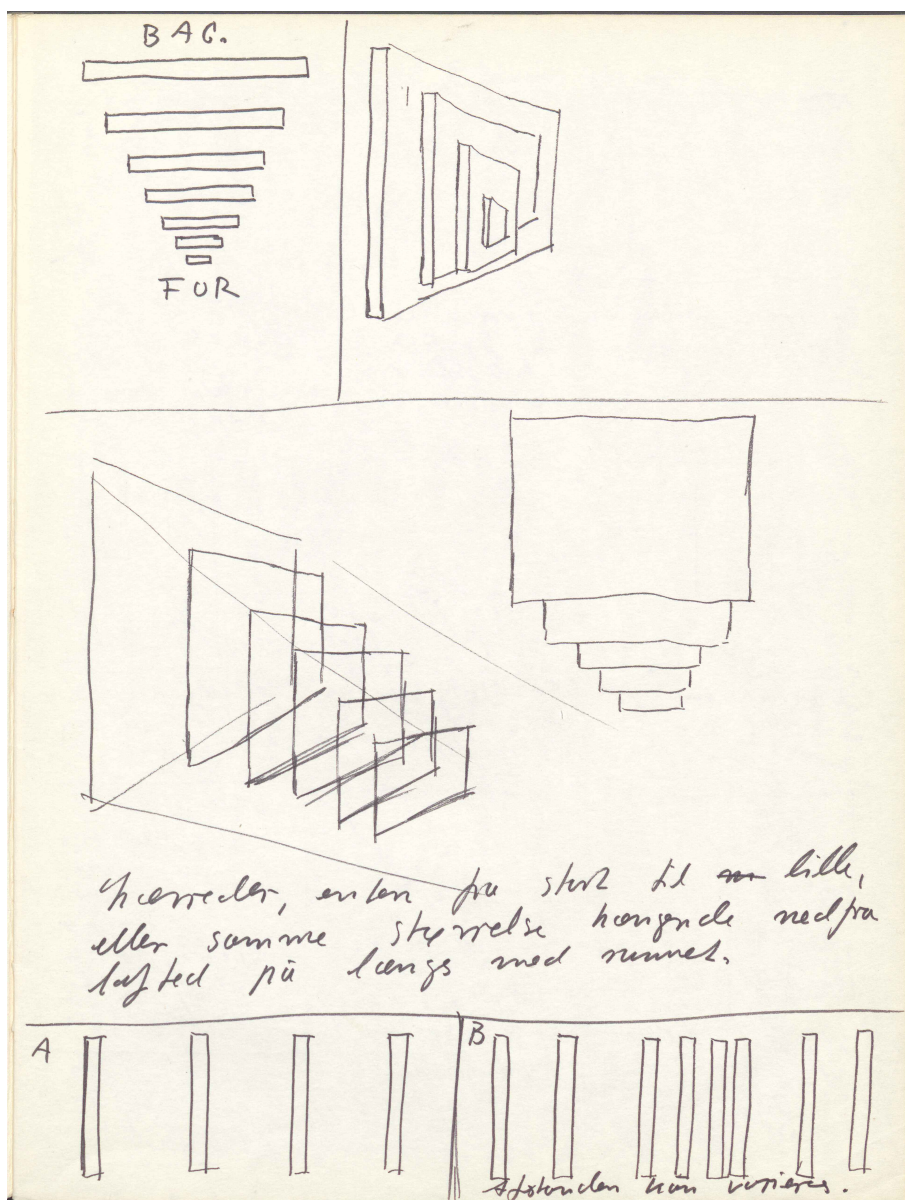 BAG.
FOR
Lærreder, enten fra stort til lille,
eller samme størrelse hængende ned fra
lofted på længs med rummet.
A
B
Afstanden kan varieres.